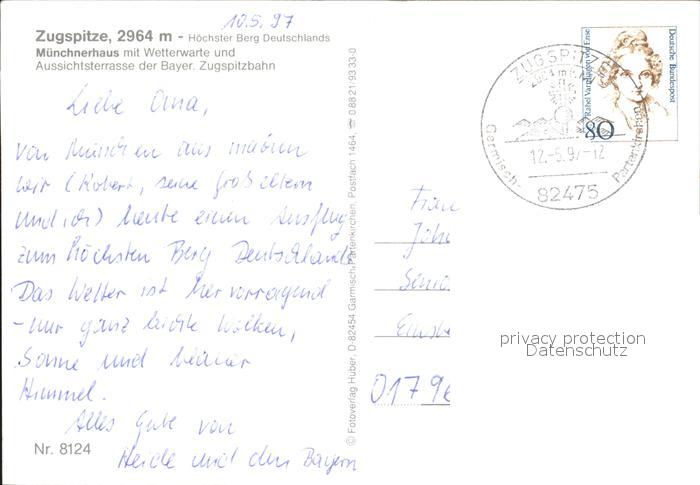 10.5.97
Zugspitze, 2964 m - Höchster Berg Deutschlands
Münchnerhaus mit Wetterwarte und
Aussichtsterrasse der Bayer. Zugspitzbahn
Liebe Oma,
von München aus machen
wir (Robert, seine Großeltern
und ich) heute einen Ausflug
zum höchsten Berg Deutschlands
Das Wetter ist hervorragend
- nur ganz leichte Wolken,
Sonne und blauer
Himmel.
Alles Gute von
Heide und den Bayern
Nr. 8124
© Fotoverlag Huber, D-82454 Garmisch-Partenkirchen, Postfach 1464, ☎ 08821 9333-0
ZUGSPITZE
2964 m
12.-5.97-12
Garmisch-Partenkirchen
82475
Rahel Varnhagen von Ense
Deutsche Bundespost
80
Frau
Joh
Senio
0179
privacy protection
Datenschutz